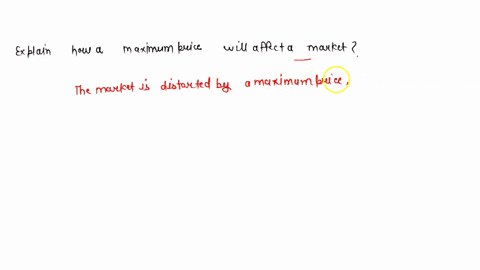 Explain how a maximum price will affect a market?
The market is distorted by a maximum price.